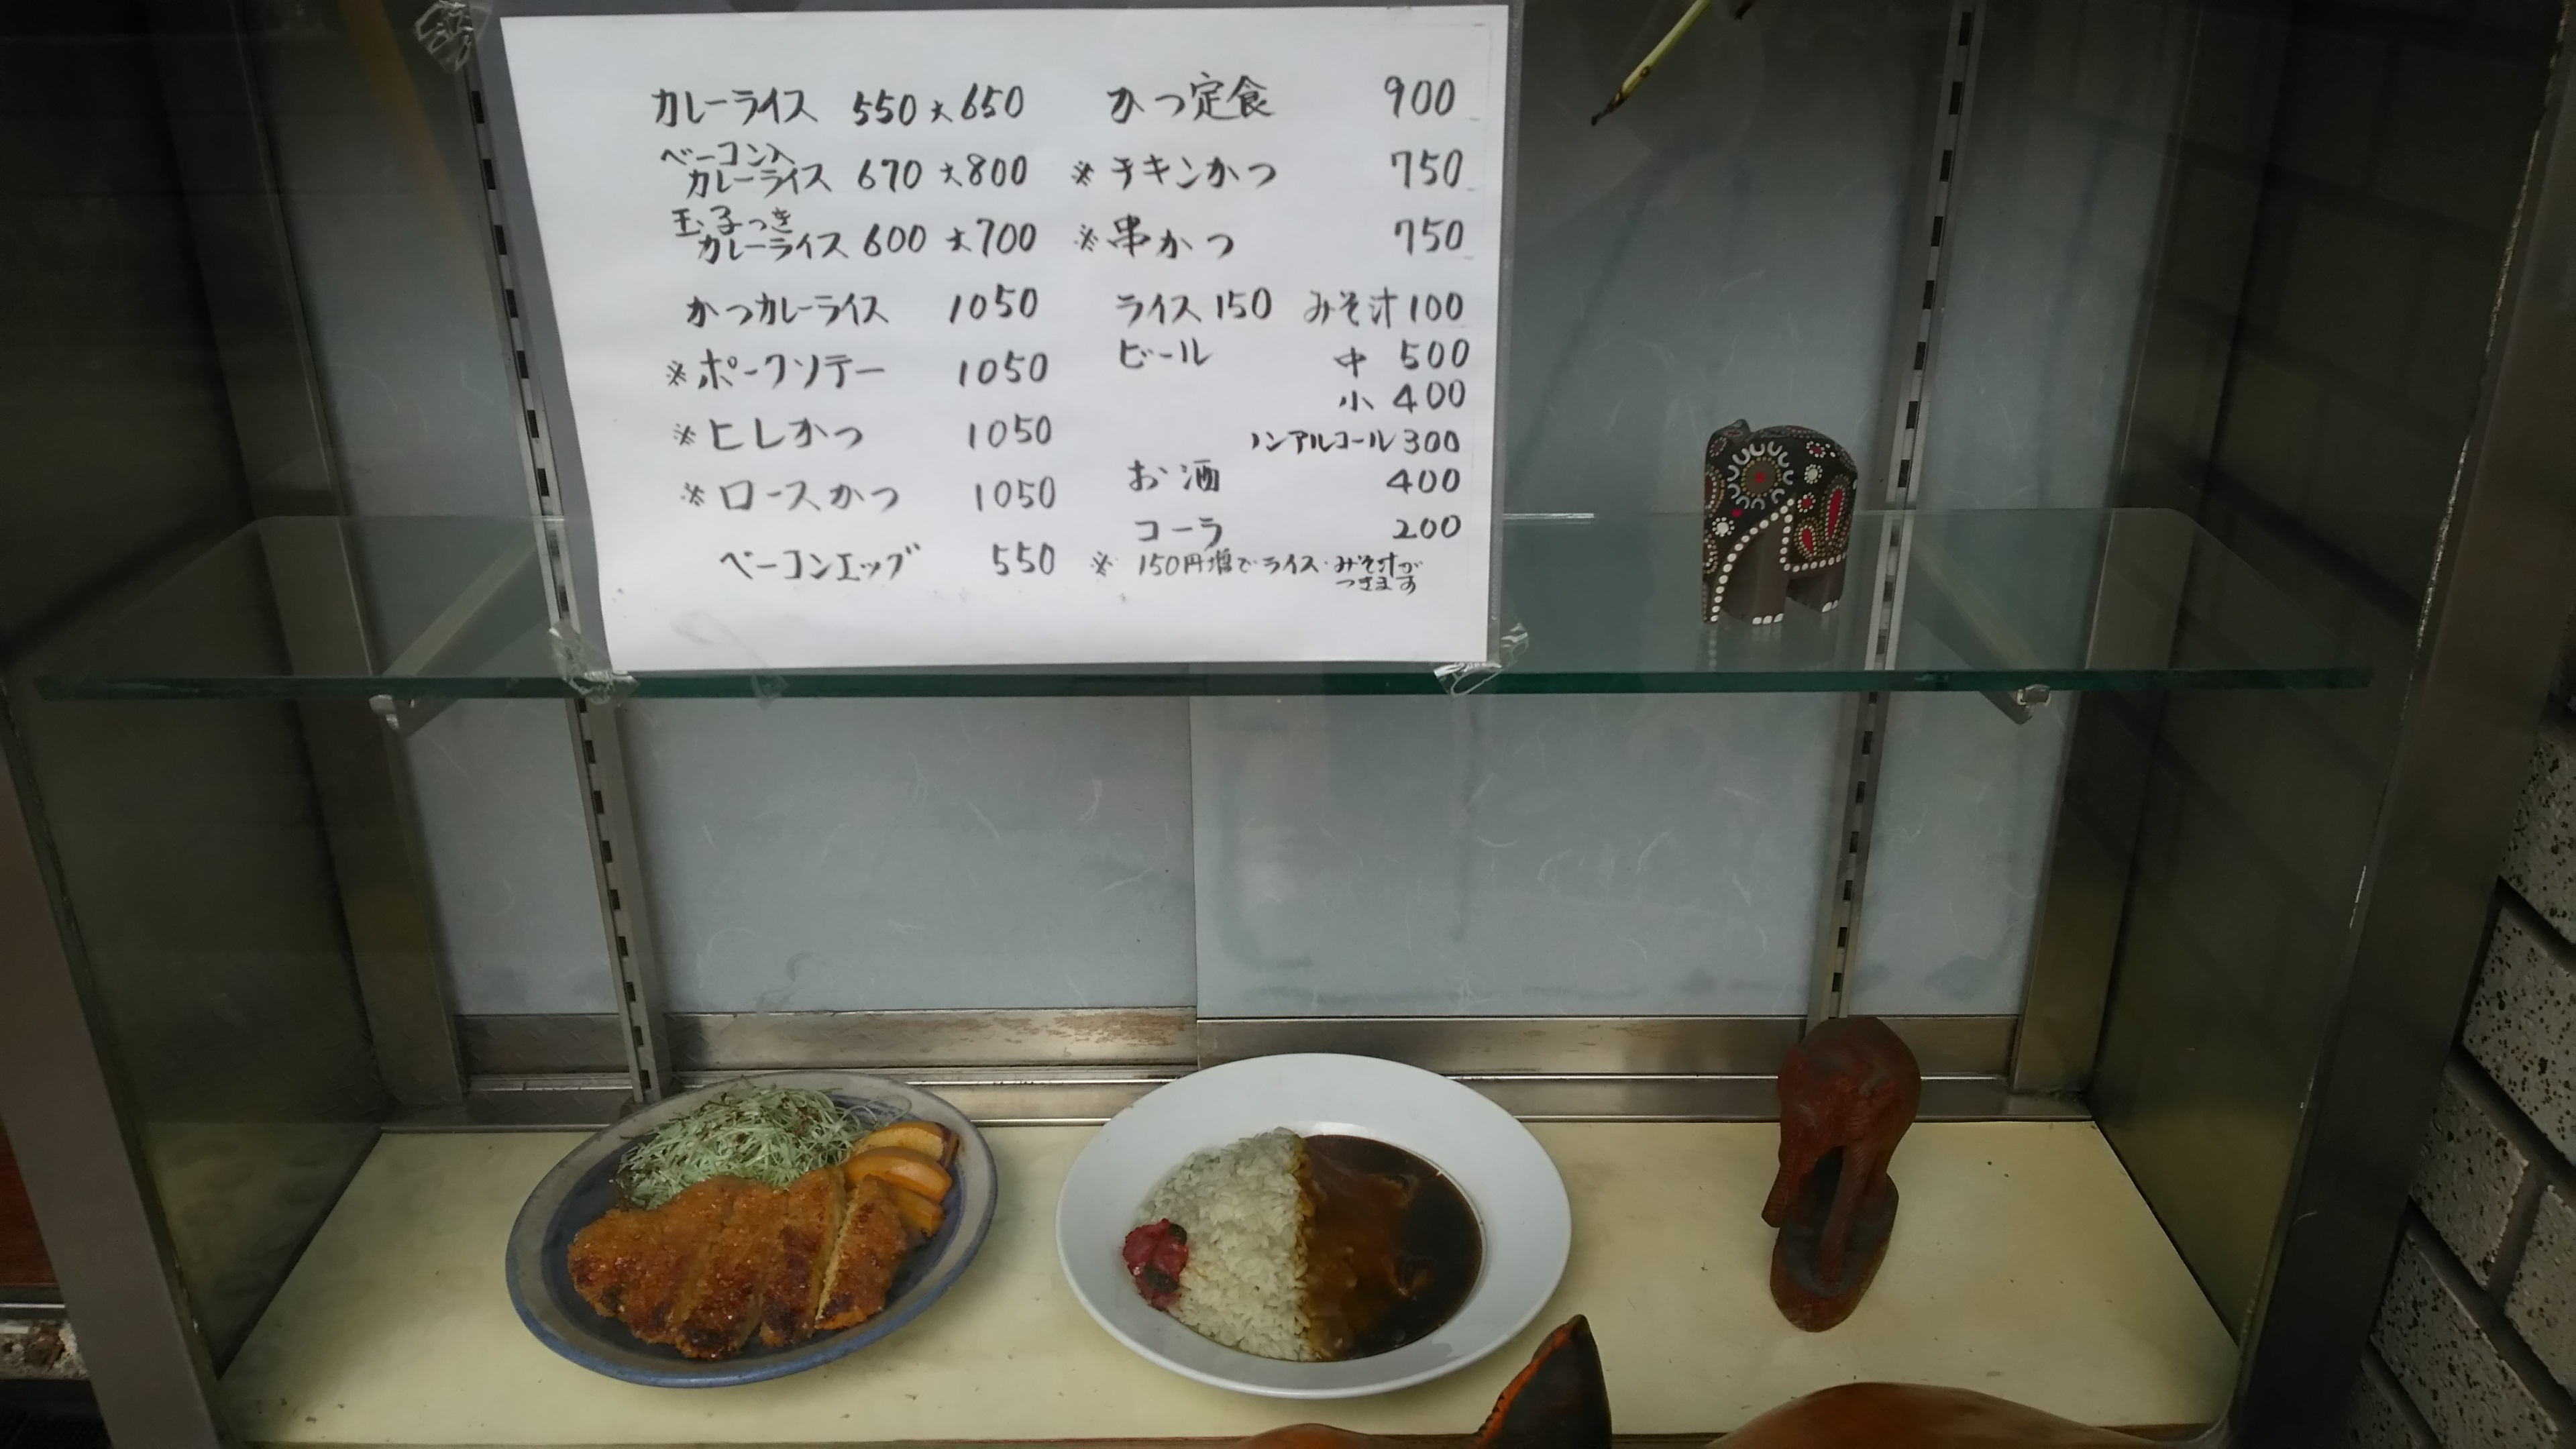 カレーライス 550 大650
ベーコン入
カレーライス 670 大800
玉子つき
カレーライス 600 大700
かつカレーライス 1050
※ポークソテー 1050
※ヒレかつ 1050
※ロースかつ 1050
ベーコンエッグ 550
かつ定食 900
※チキンかつ 750
※串かつ 750
ライス150 みそ汁100
ビール 中 500
小 400
ノンアルコール300
お酒 400
コーラ 200
※ 150円増でライス・みそ汁が
つきます